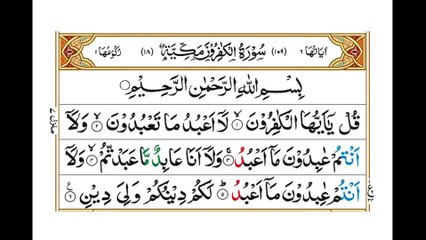 اٰيَاتُهَا ٦ (١٠٩) سُوْرَةُ الْكٰفِرُوْنَ مَكِّيَّةٌ (١٨) رُكُوْعُهَا ١
بِسْمِ اللهِ الرَّحْمٰنِ الرَّحِيْمِ
قُلْ يٰٓاَيُّهَا الْكٰفِرُوْنَ ۙ‏١ لَآ اَعْبُدُ مَا تَعْبُدُوْنَ ۙ‏٢ وَلَآ
اَنْتُمْ عٰبِدُوْنَ مَآ اَعْبُدُ ۚ‏٣ وَلَآ اَنَا عَابِدٌ مَّا عَبَدْتُّمْ ۙ‏٤ وَلَآ
اَنْتُمْ عٰبِدُوْنَ مَآ اَعْبُدُ ؕ‏٥ لَكُمْ دِيْنُكُمْ وَلِيَ دِيْنِ ‏٦
منزل ٧